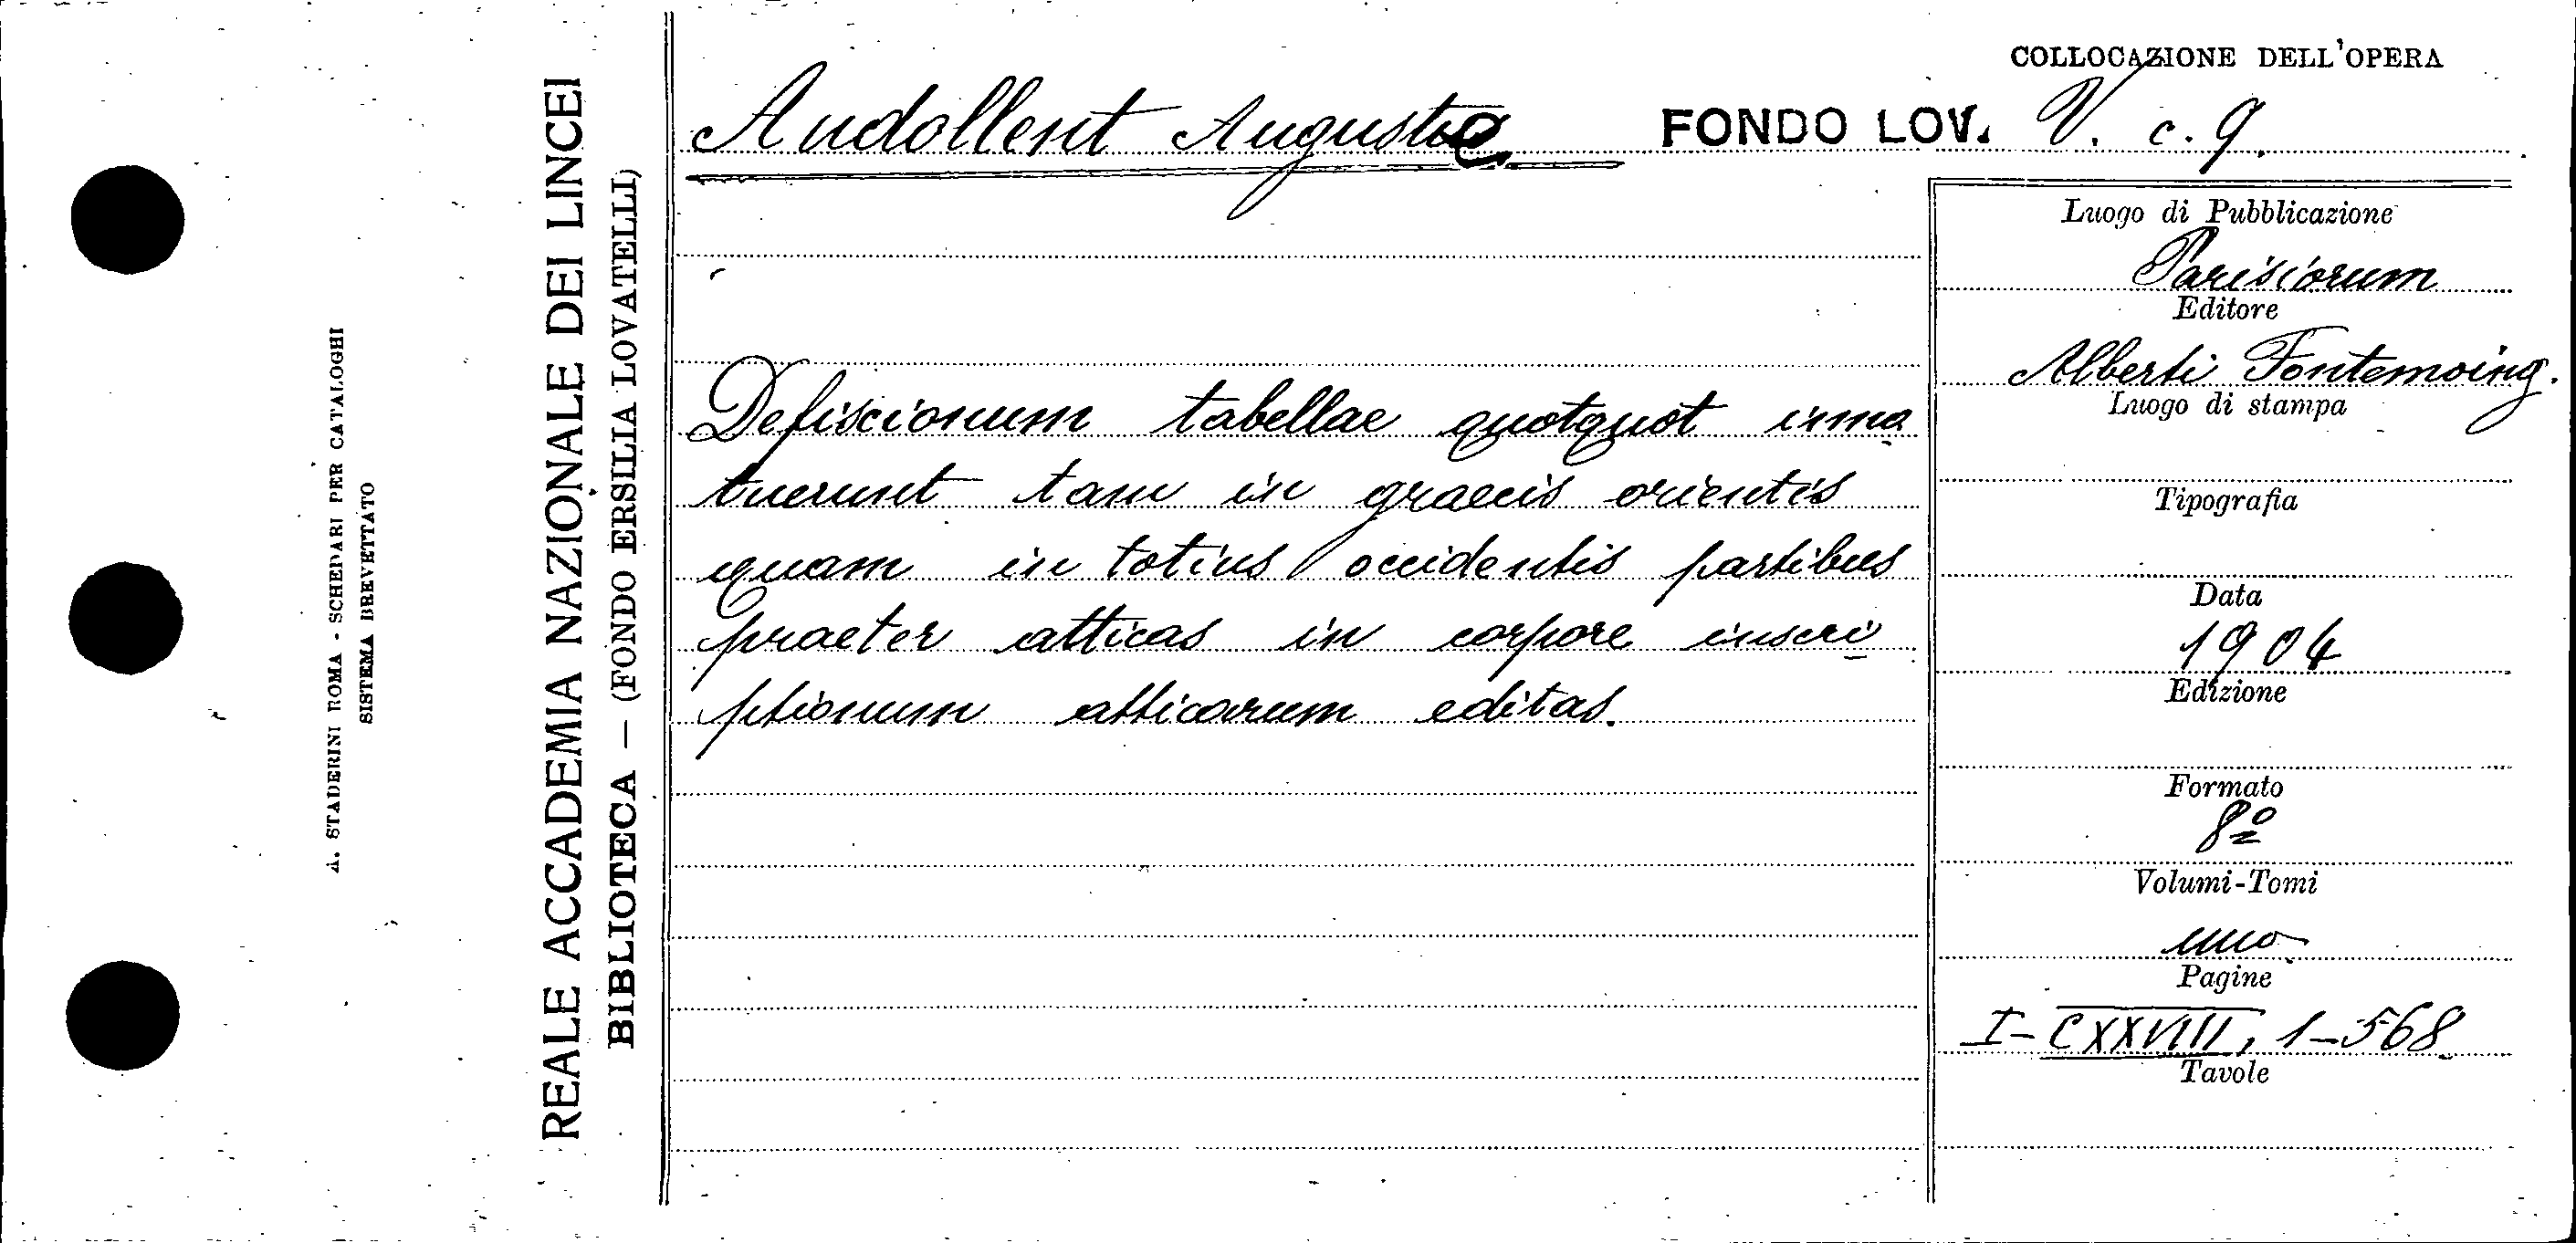 COLLOCAZIONE DELL'OPERA
Audollent Auguste FONDO LOV. V. c. 9.
Defiscionum tabellae quotquot inno
tuerunt tam in graecis orientis
quam in totius occidentis partibus
praeter atticas in corpore inscri
ptionum atticarum editas.
Luogo di Pubblicazione
Parisiorum
Editore
Alberti Fontemoing.
Luogo di stampa
Tipografia
Data
1904
Edizione
Formato
8º
Volumi-Tomi
uno
Pagine
I-CXXVIII, 1-568
Tavole
REALE ACCADEMIA NAZIONALE DEI LINCEI
BIBLIOTECA — (FONDO ERSILIA LOVATELLI)
A. STADERINI ROMA - SCHEDARI PER CATALOGHI
SISTEMA BREVETTATO